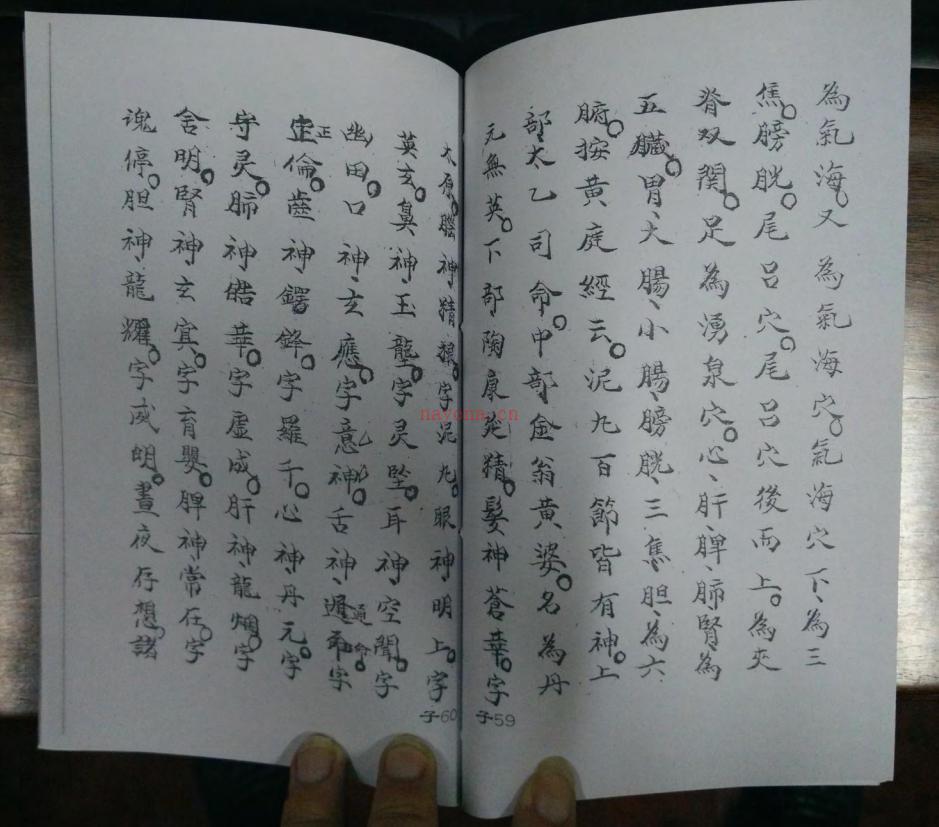 為氣海。又為氣海穴。氣海穴下、為三
焦。膀胱。尾呂穴。尾呂穴後而上。為夾
脊双関。足為湧泉穴。心、肝、脾、肺、腎為
五臟。胃、大腸、小腸、膀胱、三焦、胆、為六
腑。按黃庭經云。泥丸百節皆有神。上
部、太乙司命。中部、金翁黃婆。名為丹
元無英。下部陶康延精。髮神蒼華。字
子59
太原。腦神精根。字泥丸。眼神明上。字
英玄。鼻神、玉壟。字灵堅。耳神空閑。字
幽田。口神、玄應。字意神。舌神、通命字
正倫。齒神鍔鋒。字羅千。心神、丹元。字
守灵。肺神皓華。字虛成。肝神龍烟。字
舍明。腎神玄冥。字育嬰。脾神常在。字
魂停。胆神龍耀。字威朗。晝夜存想。諸
子60
nayona.cn